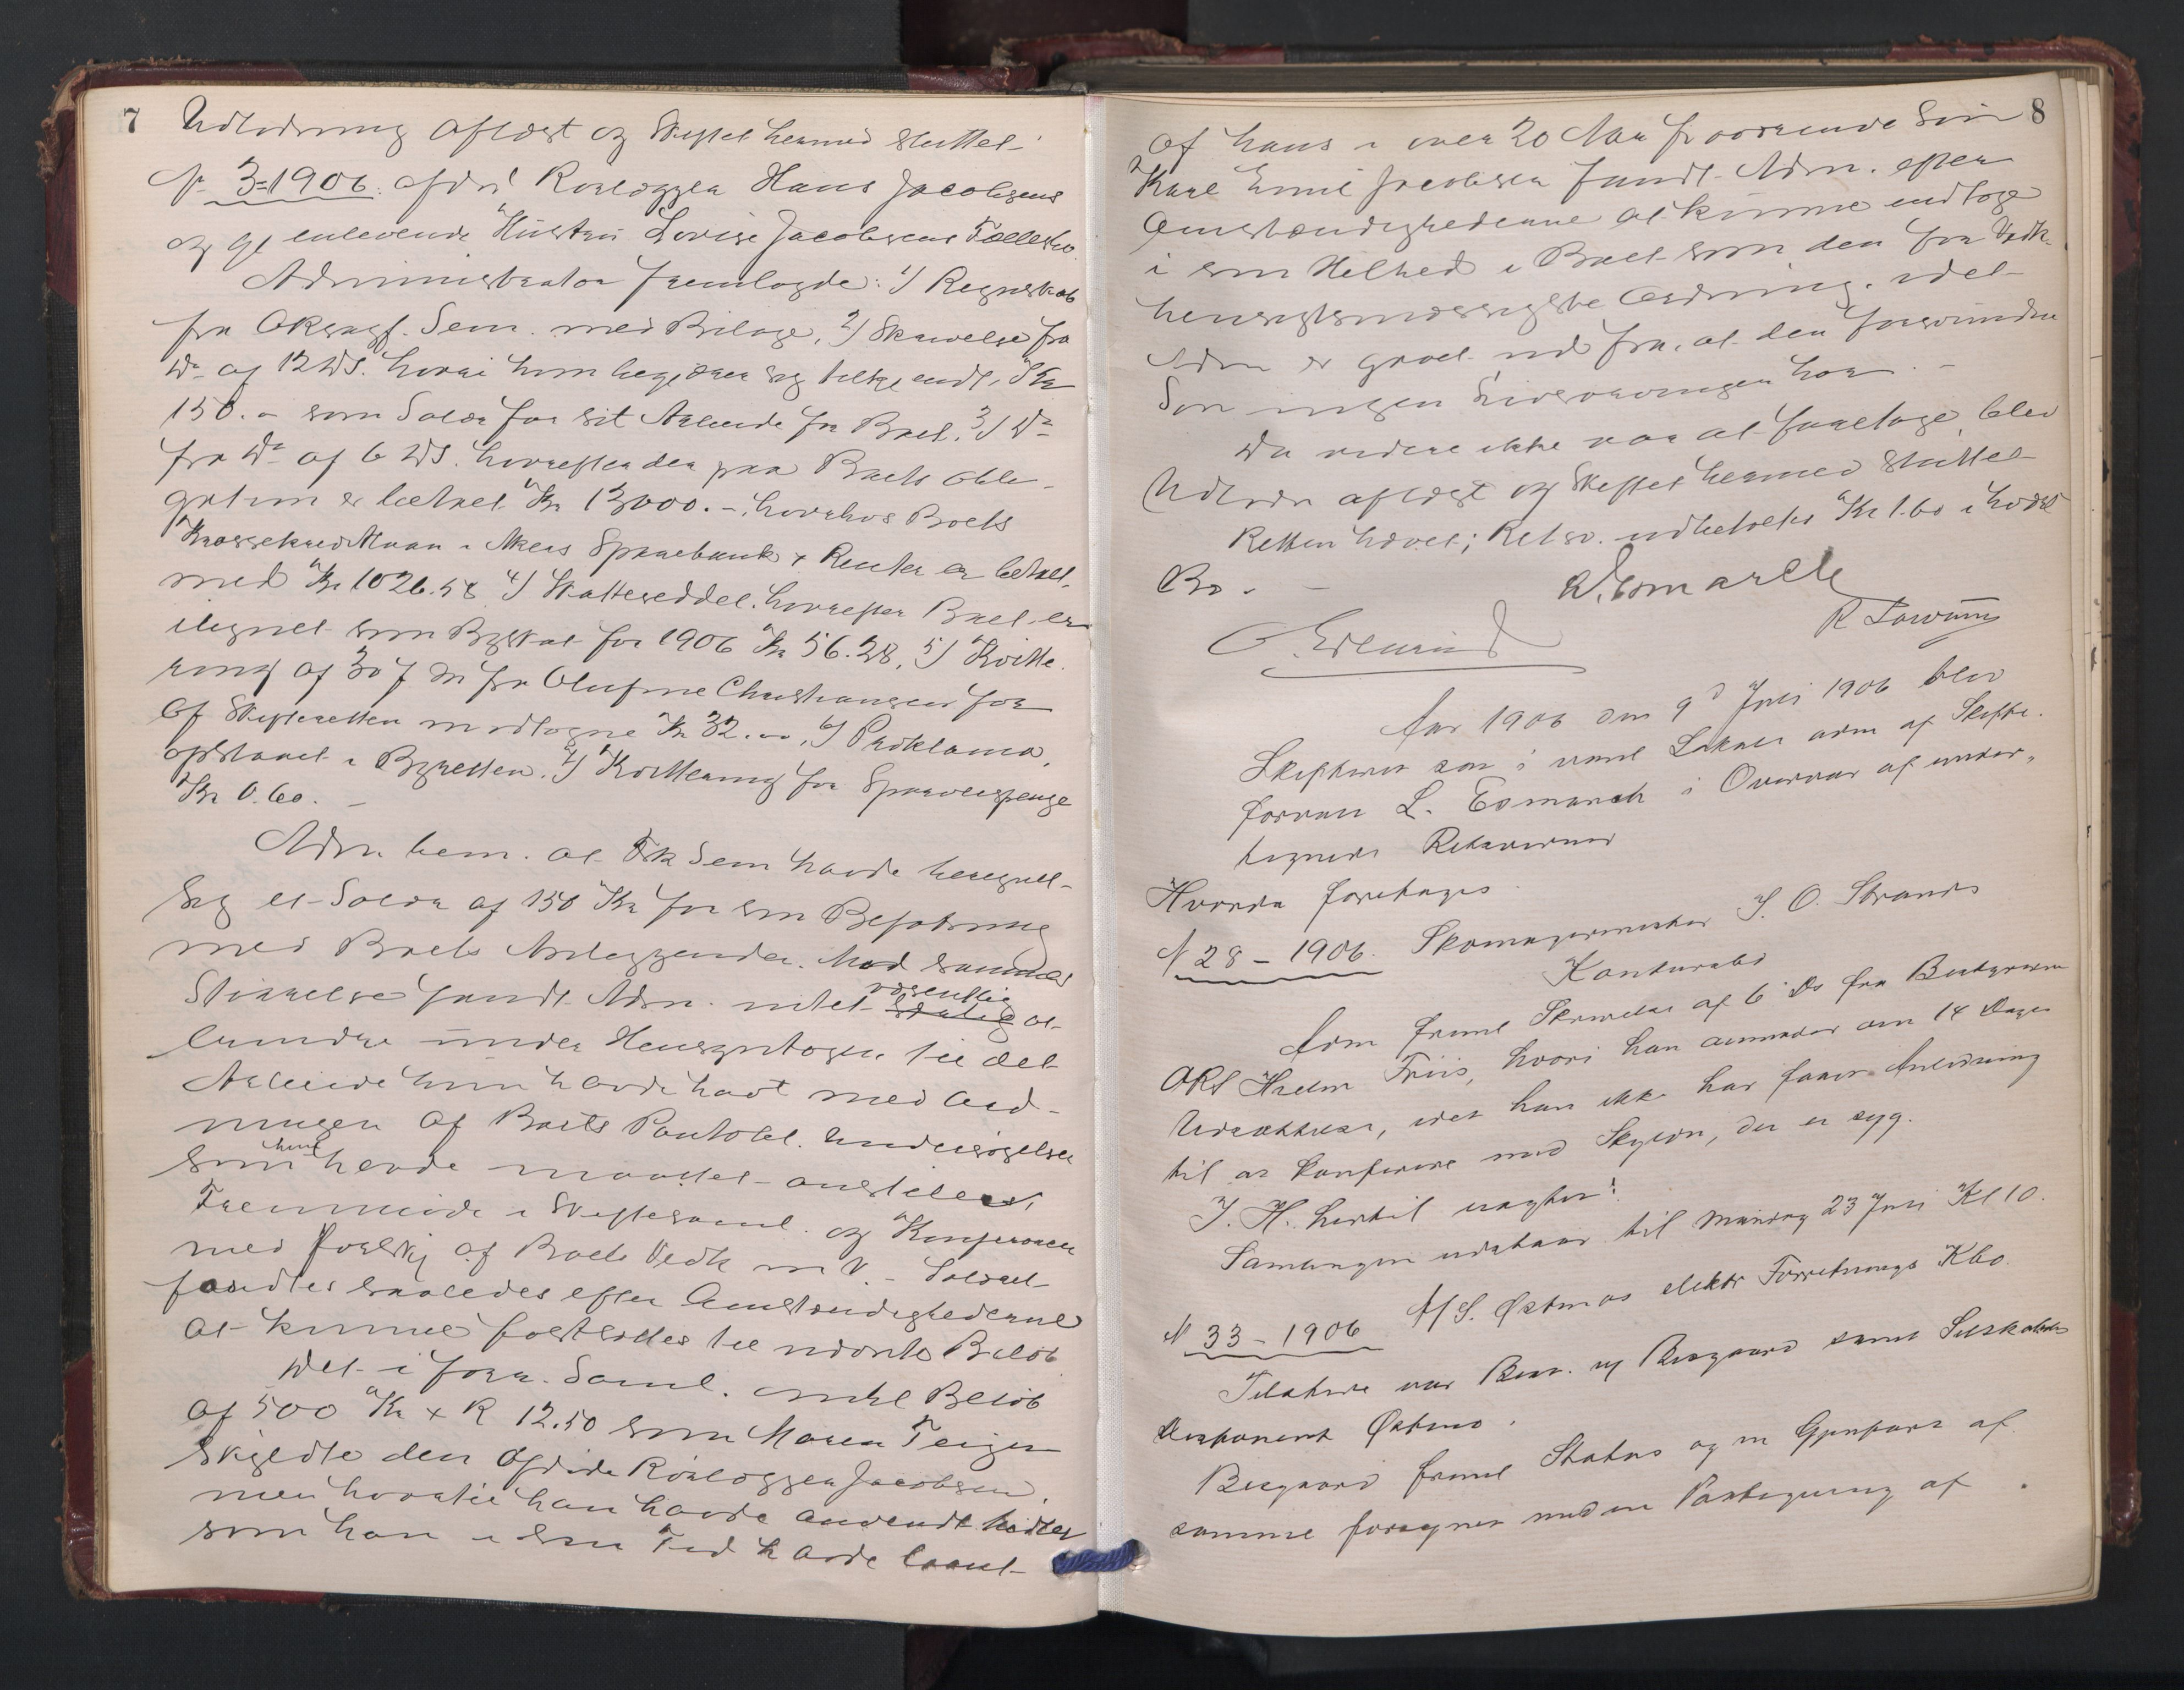 7
Udlodning oplæst og Skiftet hermed sluttet.
N. 3=1906. afdøde Rørlægger Hans Jacobsens
og gjenlevende Hustru Lovise Jacobsens Fællesbo.
Administrator fremlagde: 1) Regnskab
fra OKsagf. Sem. med Bilage, 2) Skrivelse fra
Do af 12 ds. hvori han begjærer sig tilkjendt Kr
150.- som Salær for sit Arbeide for Boet. 3) Do
fra Do af 6 ds. hvorefter der paa Boets Obli-
gation er betalt Kr 13000.-, hvorhos Boets
Kassekreditlaan i Akers Sparebank + Renter er betalt
med Kr 1026.58 4) Skatteseddel, hvorefter Boet er
ilignet som Byskat for 1906 Kr 56.28, 5) Kvitte-
ring af 30 f. M. fra Olufine Christiansen for
af Skifteretten modtagne Kr 32.00, 6) Proklama,
opslaaet i Byretten. 7) Kvittering for Sporveispenge
Kr 0.60. -
Adm bem. at Sem havde beregnet
sig et Salær af 150 Kr for sin Befatning
med Boets Anliggender. Mod sammes
Størrelse fandt Adm. intet væsentlig at
bemærke under Hensyntagen til det
Arbeide han havde havt med Ord-
ningen af Boets Panteobl. Undersøgelser
som han havde maattet anstille,
Fremmøde i Skiftesaml. og Konferancer
med forskj af Boets Vedk m.V. - Salæret
fandtes saaledes efter Omstændighederne
at kunne fastsættes til nævnte Beløb
Det i forr. Saml. omhl Beløb
af 500 Kr + R 12.50 som Maren Teigen
skyldte den afdøde Rørlægger Jacobsen,
men hvortil han havde anvendt Midler
som han i sin Tid havde laant
8
af hans i over 20 Aar fraværende Søn
Karl Emil Jacobsen fandt Adm. efter
Omstændighederne at kunne indtage
i sin Helhed i Boet som den for Vedk.
hensigtsmæssigste Ordning, idet
Adm er gaaet ud fra, at den forsvundne
Søn ingen Livsarvinger har. -
Da videre ikke var at foretage, blev
Udlodn oplæst og Skiftet hermed sluttet
Retten hævet; Retsv. udbetaltes Kr 1.60 i hvert
Bo. -
L. Esmarch
R Lowum
Aar 1906 den 9d Juli 1906 blev
Skifteret sat i vanl Lokale adm af Skifte-
forvalt L. Esmarch i Overvær af under-
tegnede Retsvidner
Hvorda foretages
N 28 - 1906. Skomagermester S. O. Strands
Konkursbo
Adm freml Skrivelse af 6 ds fra Bestyreren
OKS Hjelm Friis, hvori han anmoder om 14 Dages
Udsættelse, idet han ikke har faaet Anledning
til at konferere med Skyldn, der er syg.
I. H. hertil vagtes:
Samlingen udstaar til Mandag 23 Juli Kl 10.
N 33 - 1906 A/S. Østmos elektr Forretnings Kbo.
Tilstede var Best. og Bisgaard samt Selskabets
Disponent Østmo.
Bisgaard freml Status og en Gjenpart af
samme forsynet med en Paategning af